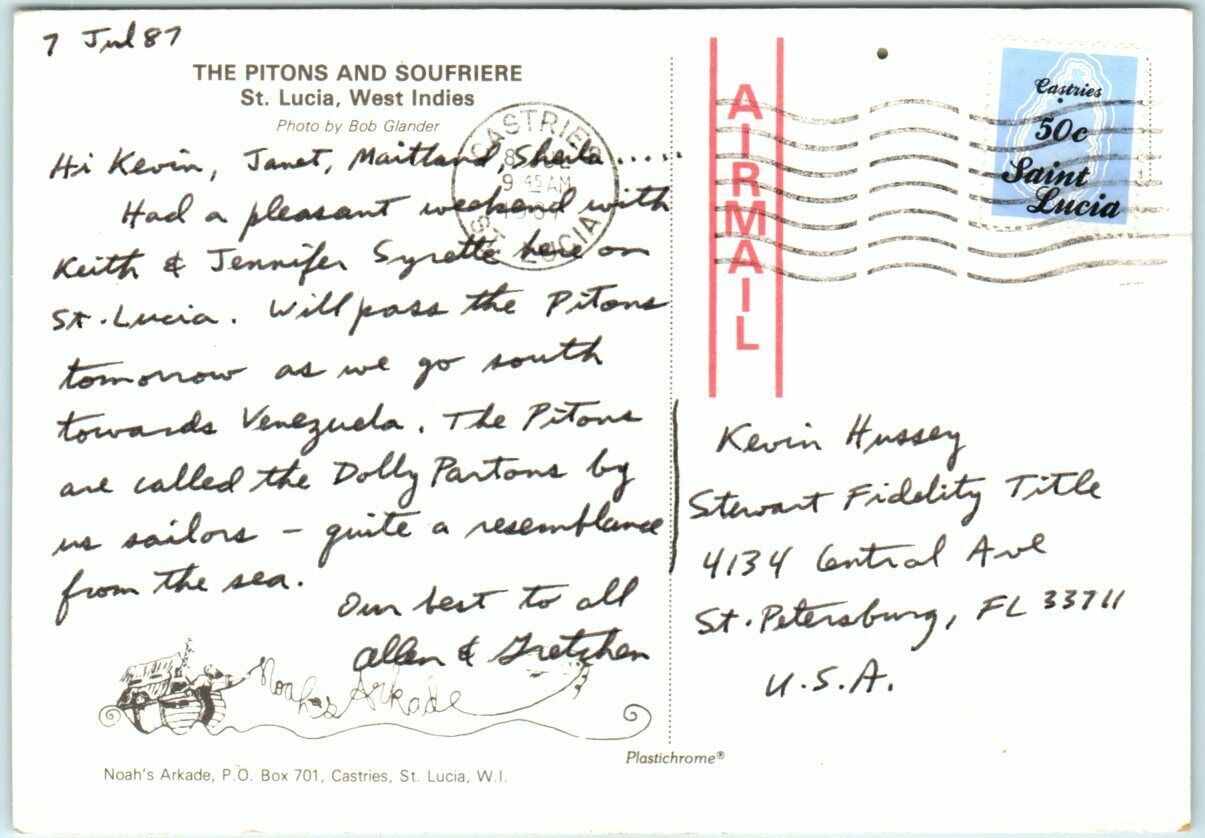 7 Jul 87
THE PITONS AND SOUFRIERE
St. Lucia, West Indies
Photo by Bob Glander
Hi Kevin, Janet, Maitland, Sheila.....
Had a pleasant weekend with
Keith & Jennifer Syrette here on
St. Lucia. Will pass the Pitons
tomorrow as we go south
towards Venezuela. The Pitons
are called the Dolly Partons by
us sailors – quite a resemblance
from the sea.
Our best to all
Allen & Gretchen
Noah's Arkade
Noah's Arkade, P.O. Box 701, Castries, St. Lucia, W.I.
Plastichrome®
CASTRIES
8
9 45 AM
ST. LUCIA
AIRMAIL
Castries
50c
Saint
Lucia
Kevin Hussey
Stewart Fidelity Title
4134 Central Ave
St. Petersburg, FL 33711
U.S.A.